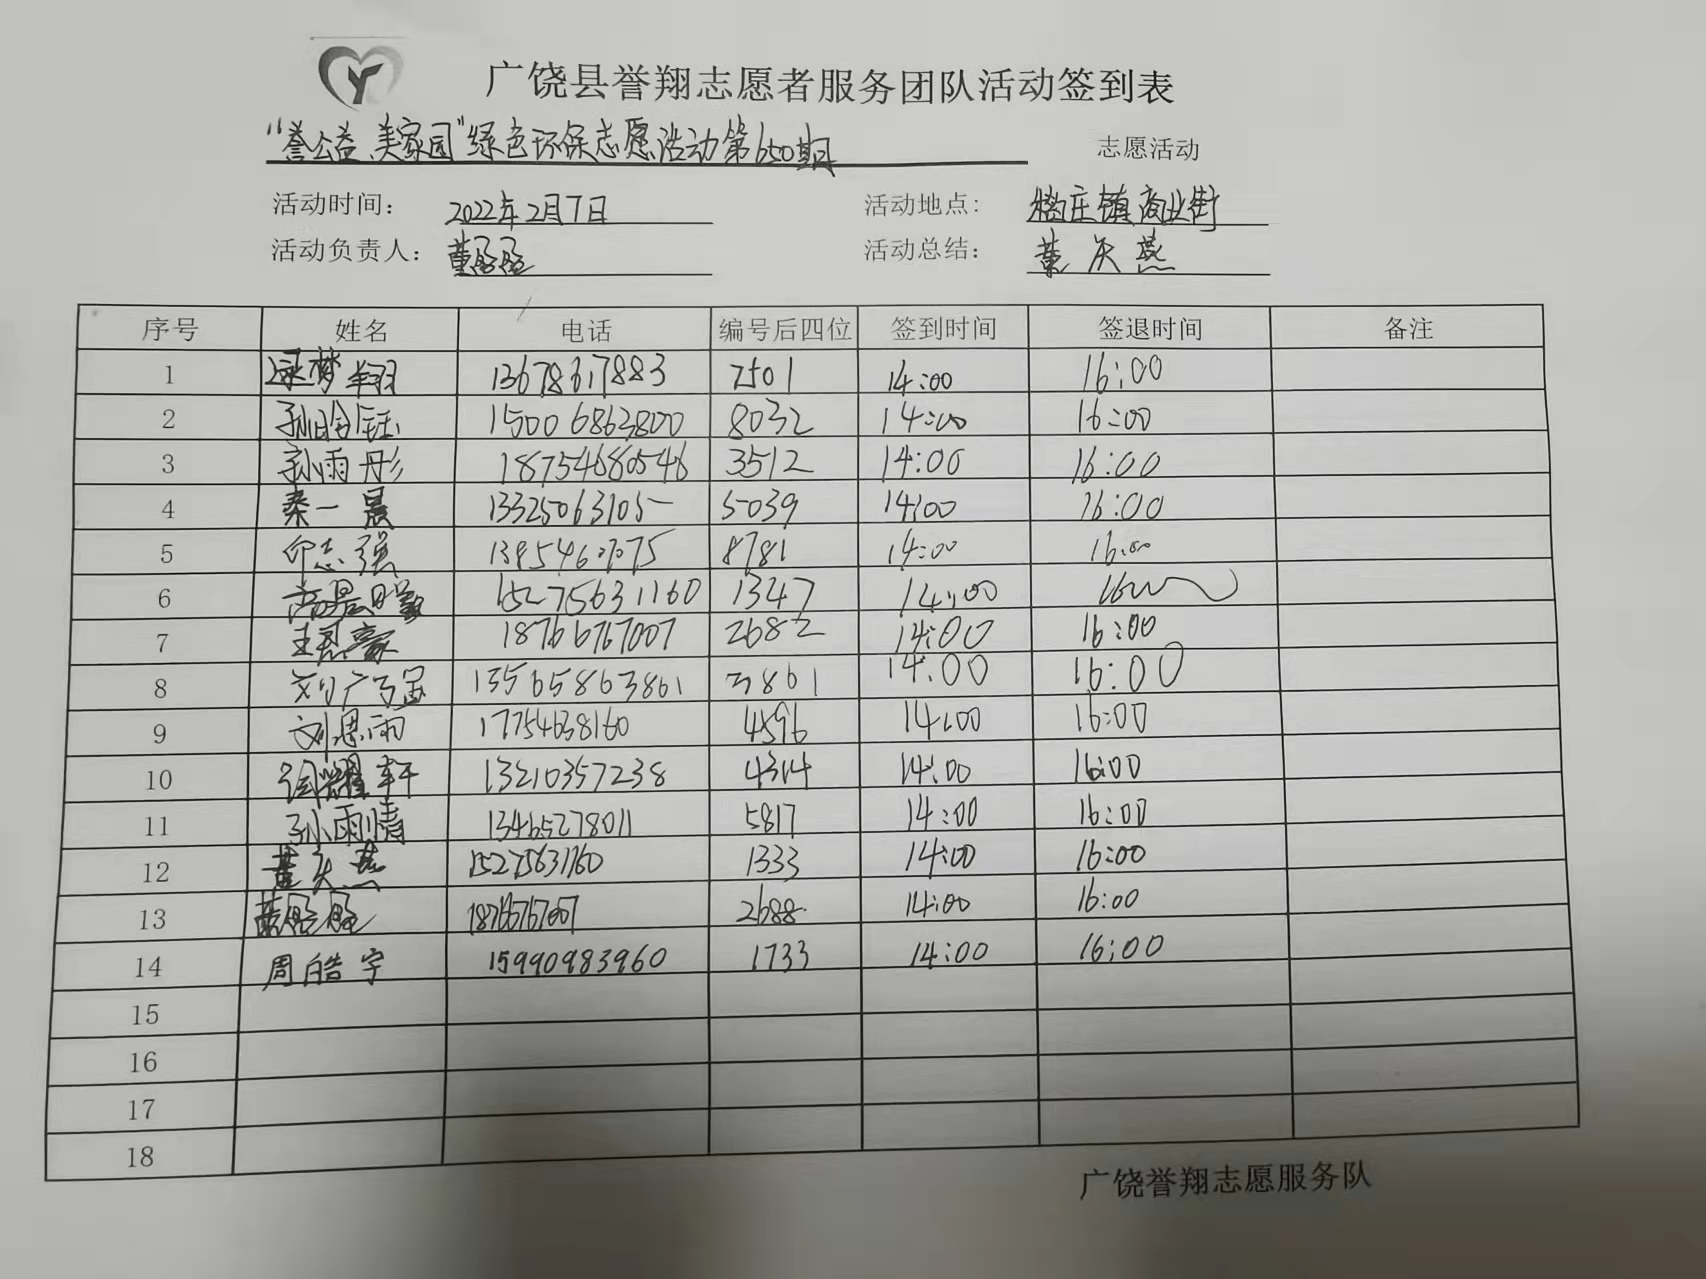 广饶县誉翔志愿者服务团队活动签到表
"誉公益、美家园"绿色环保志愿活动第650期 志愿活动
活动时间： 2022年2月7日 活动地点： 稻庄镇商业街
活动负责人： 董 活动总结： 董庆燕
序号 姓名 电话 编号后四位 签到时间 签退时间 备注
1 梦翔 13678617883 7501 14:00 16:00
2 孙晗钰 15006863800 8032 14:00 16:00
3 孙雨彤 18754680546 3512 14:00 16:00
4 秦一晨 13325063105 5039 14:00 16:00
5 志强 8781 14:00 16:00
6 15275631160 1347 14:00
7 王君豪 18766767007 2682 14:00 16:00
8 刘广 13565863861 3861 14:00 16:00
9 刘思雨 17754638160 4596 14:00 16:00
10 耀轩 13210357238 4314 14:00 16:00
11 孙雨晴 13465278011 5817 14:00 16:00
12 董庆燕 15275631160 1333 14:00 16:00
13 董 18766767007 2688 14:00 16:00
14 周皓宇 15990983960 1733 14:00 16:00
15
16
17
18
广饶誉翔志愿服务队